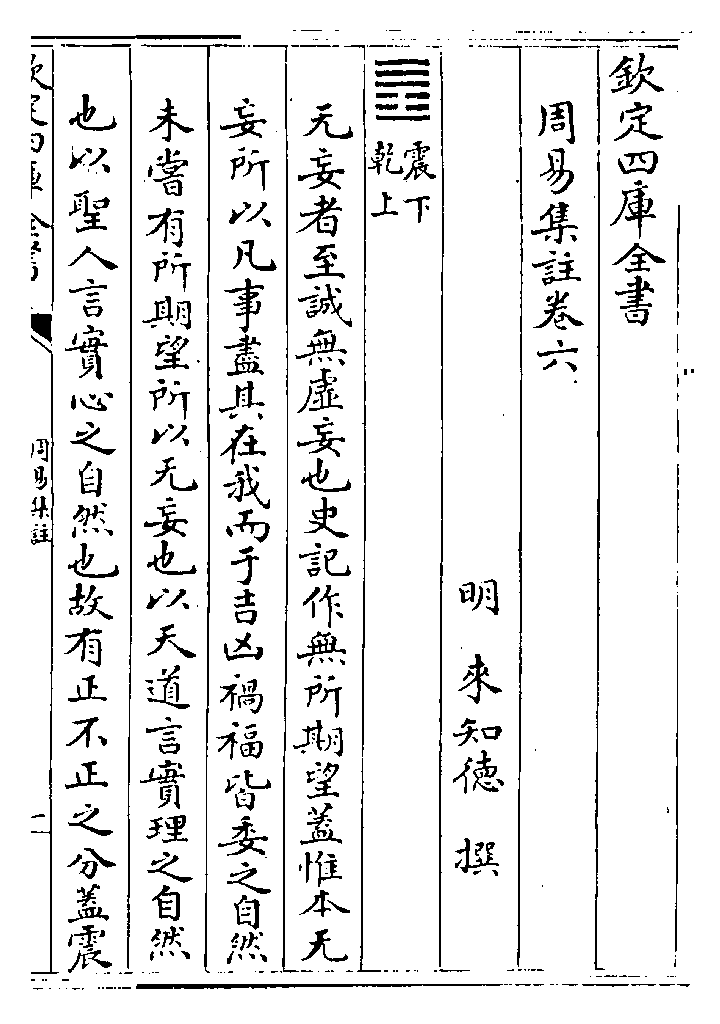 欽定四庫全書
周易集註卷六
明 來知德 撰
䷘ 震下
乾上
无妄者至誠無虛妄也史記作無所期望蓋惟本无
妄所以凡事盡其在我而于吉凶禍福皆委之自然
未嘗有所期望所以无妄也以天道言實理之自然
也以聖人言實心之自然也故有正不正之分蓋震
欽定四庫全書
周易集註
一